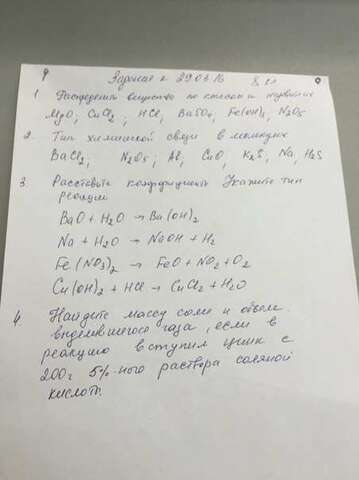 Задание к 29.03.16 8 кл
1 Распределить вещества по классам и назвать их
MgO; CuCl2; HCl; BaSO4, Fe(OH)3, N2O5
2. Тип химической связи в молекулах
BaCl2; N2O5; Al; CuO, K2S; Na, H2S
3. Расставить коэффициенты Укажите тип
реакции
BaO + H2O → Ba(OH)2
Na + H2O → NaOH + H2
Fe(NO3)2 → FeO + NO2 + O2
Cu(OH)2 + HCl → CuCl2 + H2O
4. Найдите массу соли и объем
выделившегося газа, если в
реакцию вступил цинк с
200г 5%-ного раствора соляной
кислоты.